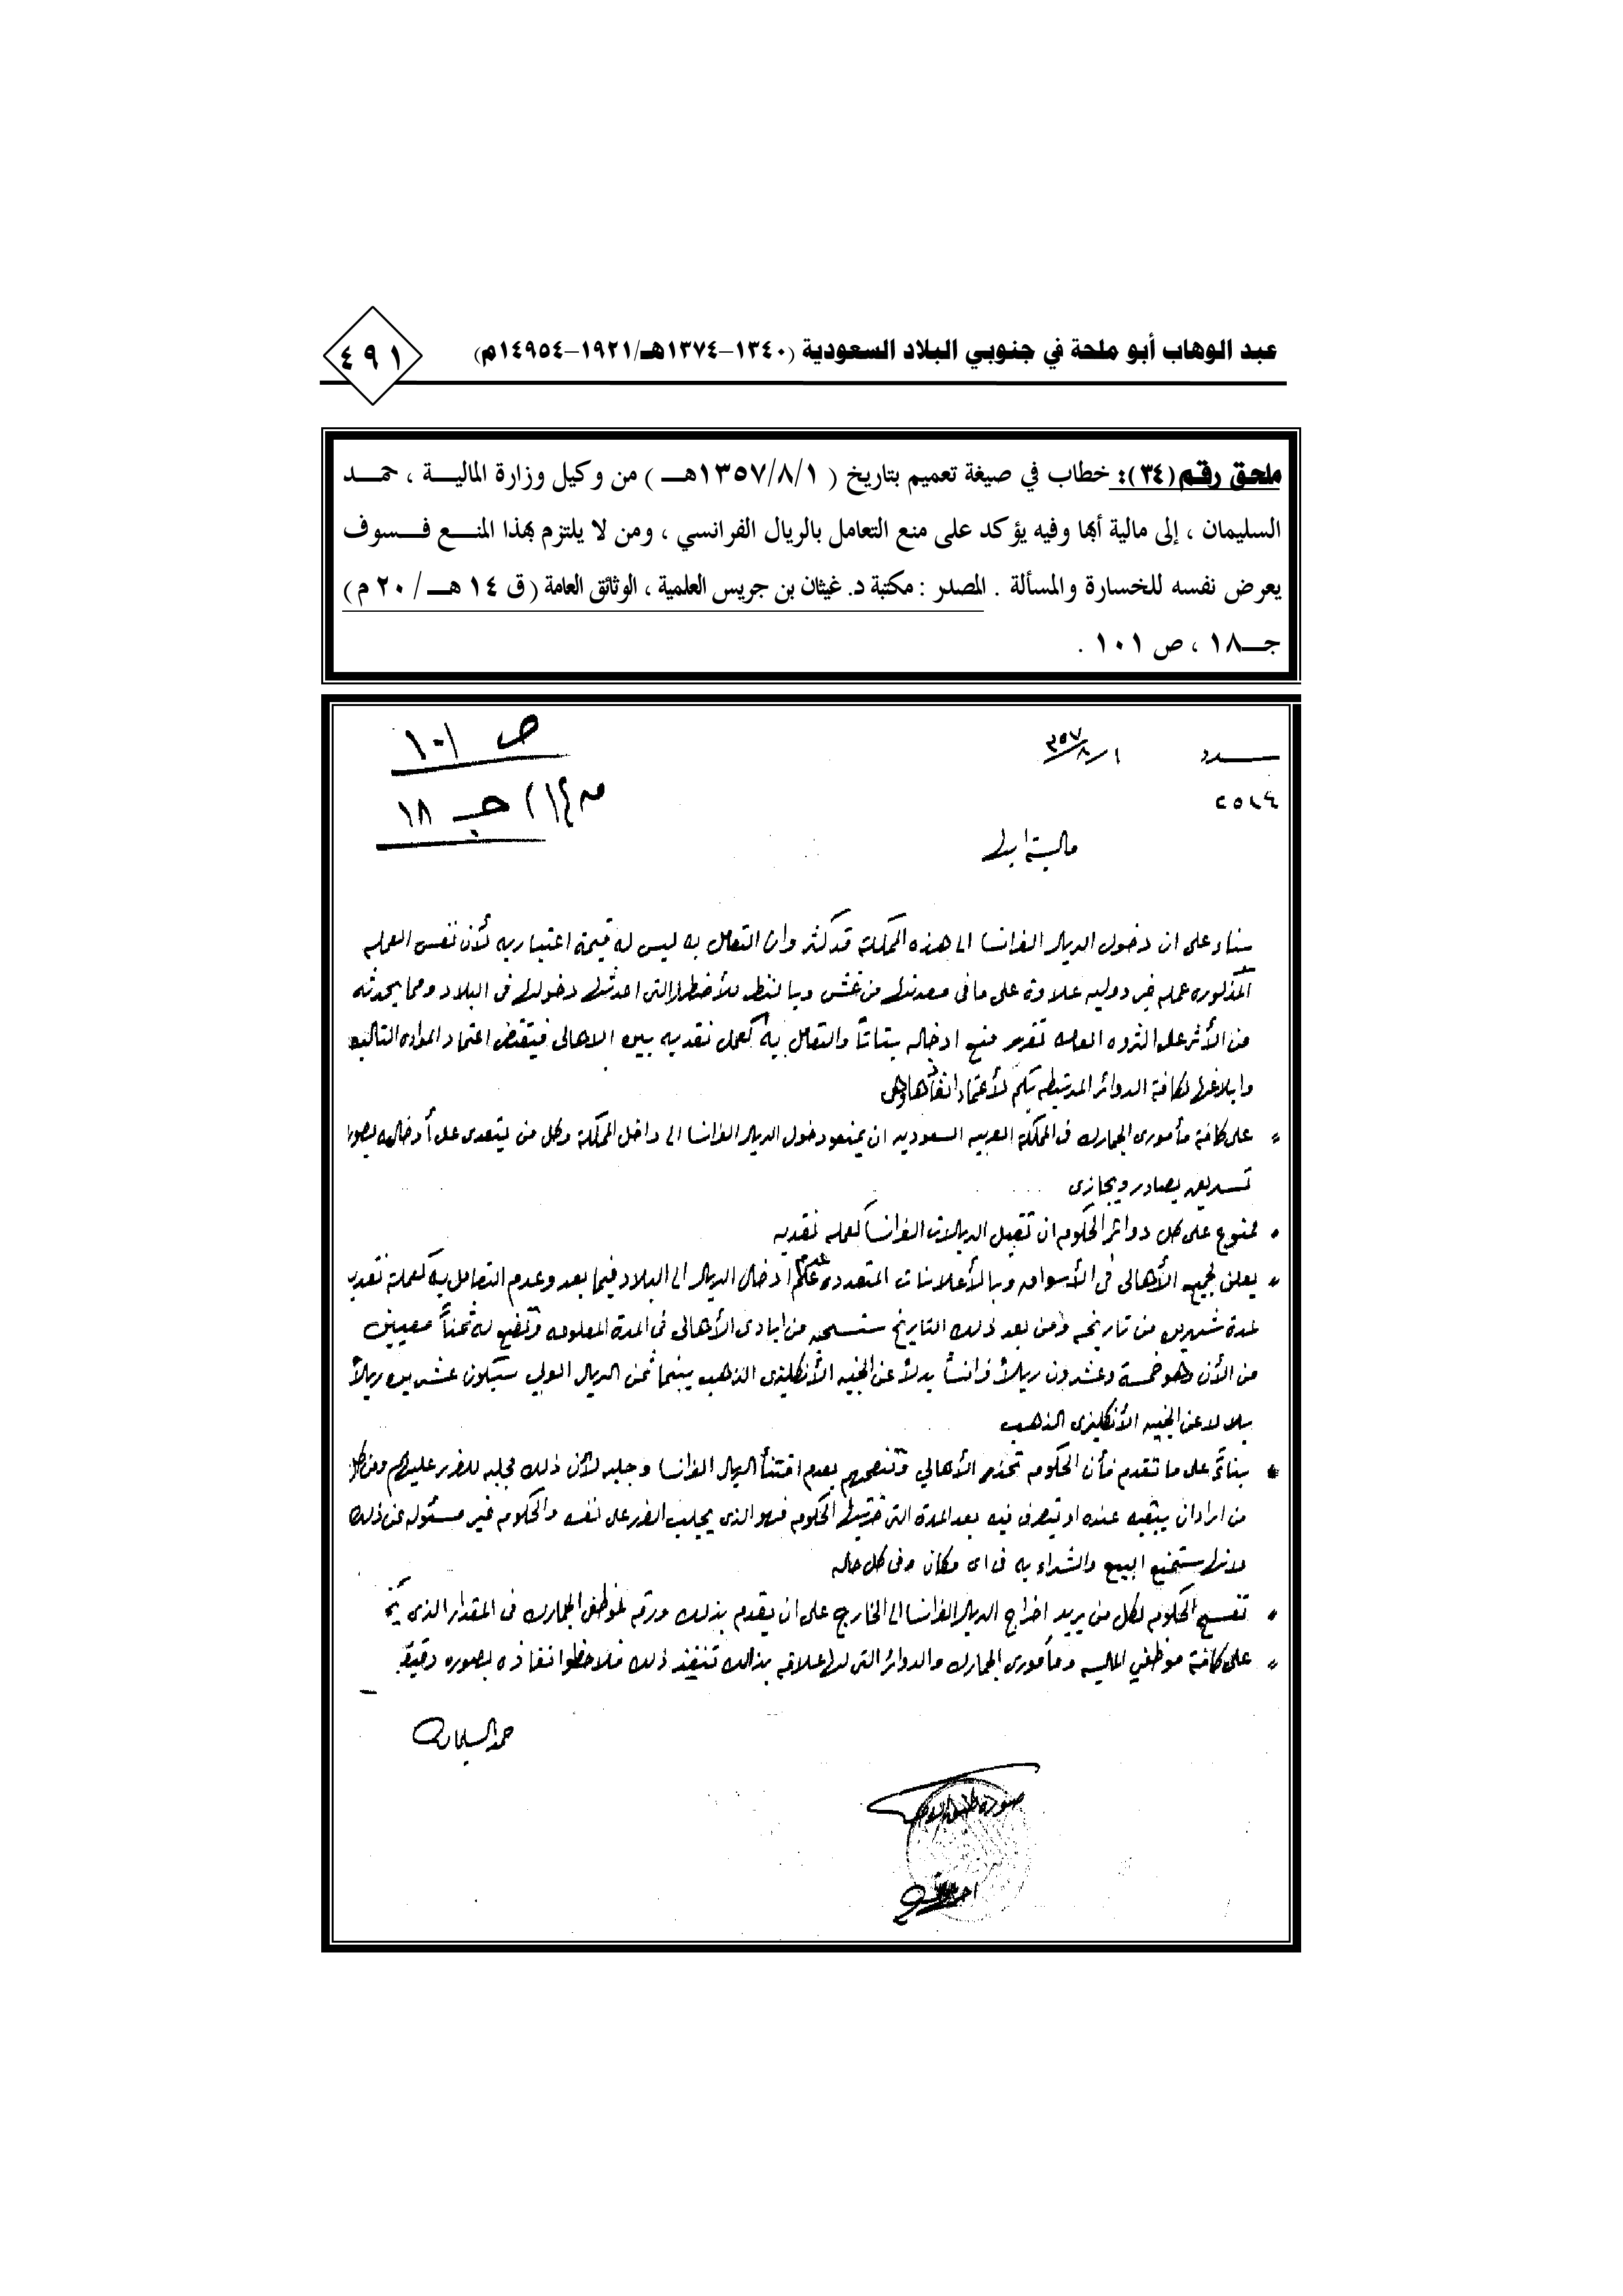 عبد الوهاب أبو ملحة في جنوبي البلاد السعودية (١٣٤٠-١٣٧٤هـ/١٩٢١-١٤٩٥٤م)
٤٩١
ملحق رقم (٣٤): خطاب في صيغة تعميم بتاريخ ( ١٣٥٧/٨/١هـ ) من وكيل وزارة المالية ، حمد
السليمان ، إلى مالية أبها وفيه يؤكد على منع التعامل بالريال الفرانسي ، ومن لا يلتزم بهذا المنع فسوف
يعرض نفسه للخسارة والمسألة . المصدر : مكتبة د. غيثان بن جريس العلمية ، الوثائق العامة (ق ١٤ هـ / ٢٠ م)
جـ١٨ ، ص ١٠١ .
ص ١٠١
جـ ١٨
عدد
٣٥٧/٨/١
مالية ابها
بناء على ان دخول الريال الفرانسا الى هذه المملكة قد كثر وان التعامل به ليس له قيمة اعتباريه لأن نفس العمله
المذكوره عمله غير دوليه علاوة على ما في معدنها من غش وبالنظر للأضطراالتى احدثها دخولها فى البلاد ومما يحدثه
من الأثر على الثروه العامه تقرر منع ادخاله بتاتاً والتعامل به كعمل نقديه بين الاهالى فيقتضى اعتماد المواد التاليه
وابلاغها لكافة الدوائر المرتبطه بكم لأعتماد انفاذها وهى
على كافة مأمورى الجمارك فى المملكة العربيه السعوديه ان يمنعو دخول الريال الفرانسا الى داخل المملكة وكل من يتعدى على أدخاله بصورة
تهريب يصادر ويجازى
ممنوع على كل دوائر الحكومه ان تقبل الريالات الفرانسا كعمله نقديه
يعلن لجميع الأهالى فى الأسواق وبالأعلانات المتعدده عدم ادخال الريال الى البلاد فيما بعد وعدم التعامل به كعملة نقديه
لمدة شهرين من تاريخه ومن بعد ذلك التاريخ ستسحبه من ايادى الأهالى فى المدة المعلومه وتضع له ثمناً معيين
من الأن وهو خمسة وعشرون ريالاً فرانساً بدلاً عن الجنيه الأنكليزى الذهب بينما ثمن الريال العربي سيكون عشرين ريالاً
بدلا عن الجنيه الأنكليزى الذهب
بناءً على ما تقدم فأن الحكومه تحذر الأهالي وتنصحهم بعدم اقتنأ الريال الفرانسا وجلبه لأن ذلك مجلبه للضرر عليهم
من اراد ان يبقيه عنده او يتصرف فيه بعد المدة التى الحكومه فهو الذى يجلب الضرر على نفسه والحكومه غير مسئوله عن ذلك
لانها ستمنع البيع والشراء به فى اى مكان وفى كل حاله
تفسح الحكومه لكل من يريد اخراج الريال الفرانسا الى الخارج على ان يقدم بذلك ورقه لموظفى الجمارك فى المقدار الذى
على كافة موظفي الماليه ومأمورى الجمارك والدوائر التى لها علاقه بذالك تنفيذ ذلك فلاحظوا نفاذه بصوره دقيقه
حمد السليمان
صورة طبق الاصل